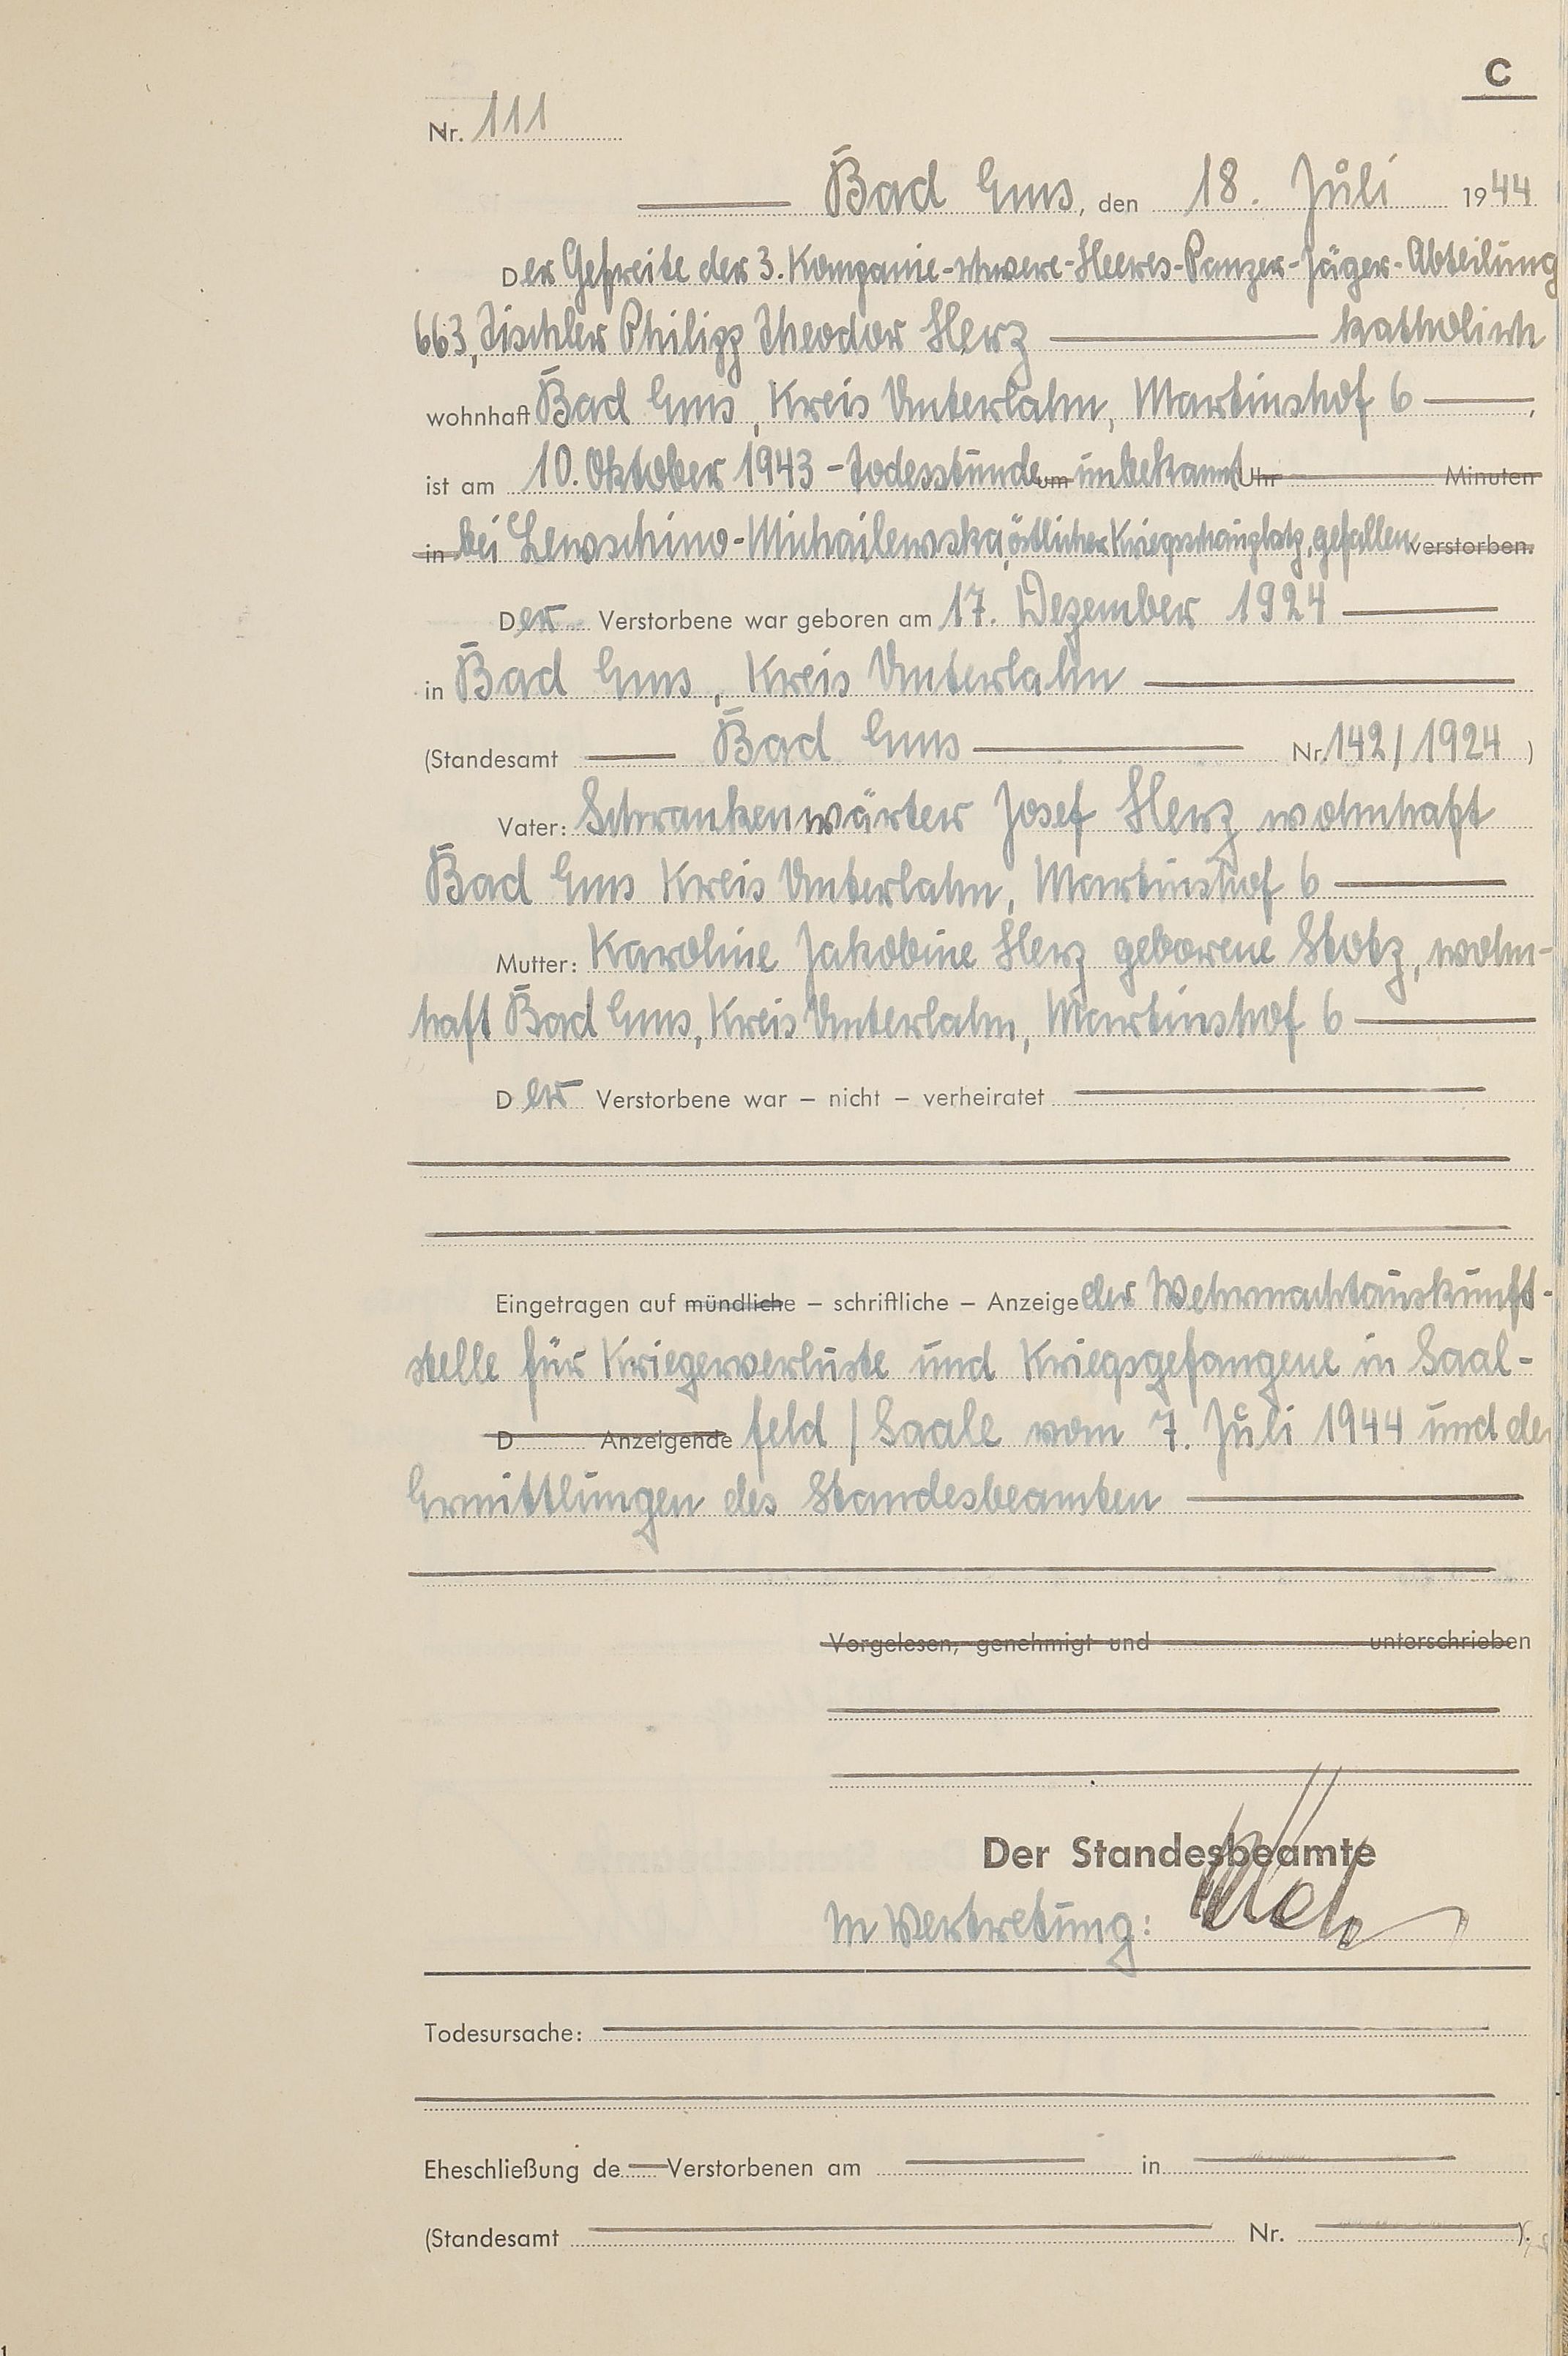 C
Nr. 111
Bad Ems, den 18. Juli 1944
Der Gefreite der 3. Kompanie-schwere-Heeres-Panzer-Jäger-Abteilung
663, Tischler Philipp Theodor Herz katholisch
wohnhaft Bad Ems, Kreis Unterlahn, Martinshof 6,
ist am 10. Oktober 1943 - Todesstunde um unbekannt Uhr Minuten
in bei Lewschino-Michailewska, östlicher Kriegsschauplatz, gefallen verstorben.
Der Verstorbene war geboren am 17. Dezember 1924
in Bad Ems, Kreis Unterlahn
(Standesamt Bad Ems Nr. 142/1924)
Vater: Schrankenwärter Josef Herz wohnhaft
Bad Ems Kreis Unterlahn, Martinshof 6
Mutter: Karoline Jakobine Herz geborene Stotz, wohn-
haft Bad Ems, Kreis Unterlahn, Martinshof 6
Der Verstorbene war – nicht – verheiratet
Eingetragen auf mündliche – schriftliche – Anzeige der Wehrmachtauskunft-
stelle für Kriegerverluste und Kriegsgefangene in Saal-
D Anzeigende feld / Saale vom 7. Juli 1944 und der
Ermittlungen des Standesbeamten
Vorgelesen, genehmigt und unterschrieben
Der Standesbeamte
In Vertretung:
Todesursache:
Eheschließung de Verstorbenen am in
(Standesamt Nr. ).
1